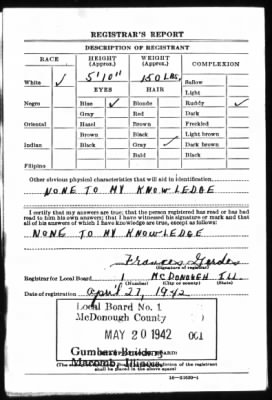 REGISTRAR'S REPORT
DESCRIPTION OF REGISTRANT
RACE HEIGHT (Approx.) WEIGHT (Approx.) COMPLEXION
White ✓ 5'10" 150 LBS. Sallow
EYES HAIR Light
Negro Blue ✓ Blonde Ruddy ✓
Gray Red Dark
Oriental Hazel Brown Freckled
Brown Black Light brown
Indian Black Gray ✓ Dark brown
Bald Black
Filipino
Other obvious physical characteristics that will aid in identification
NONE TO MY KNOWLEDGE
I certify that my answers are true; that the person registered has read or has had
read to him his own answers; that I have witnessed his signature or mark and that
all of his answers of which I have knowledge are true, except as follows:
NONE TO MY KNOWLEDGE
Frances
(Signature of registrar)
Registrar for Local Board 1 McDONOUGH ILL.
(Number) (City or county) (State)
Date of registration April 27, 1942
Local Board No. 1
McDonough County
MAY 20 1942 001
Gumbart Building
Macomb, Illinois
BOARD)
shall be placed in the above space)